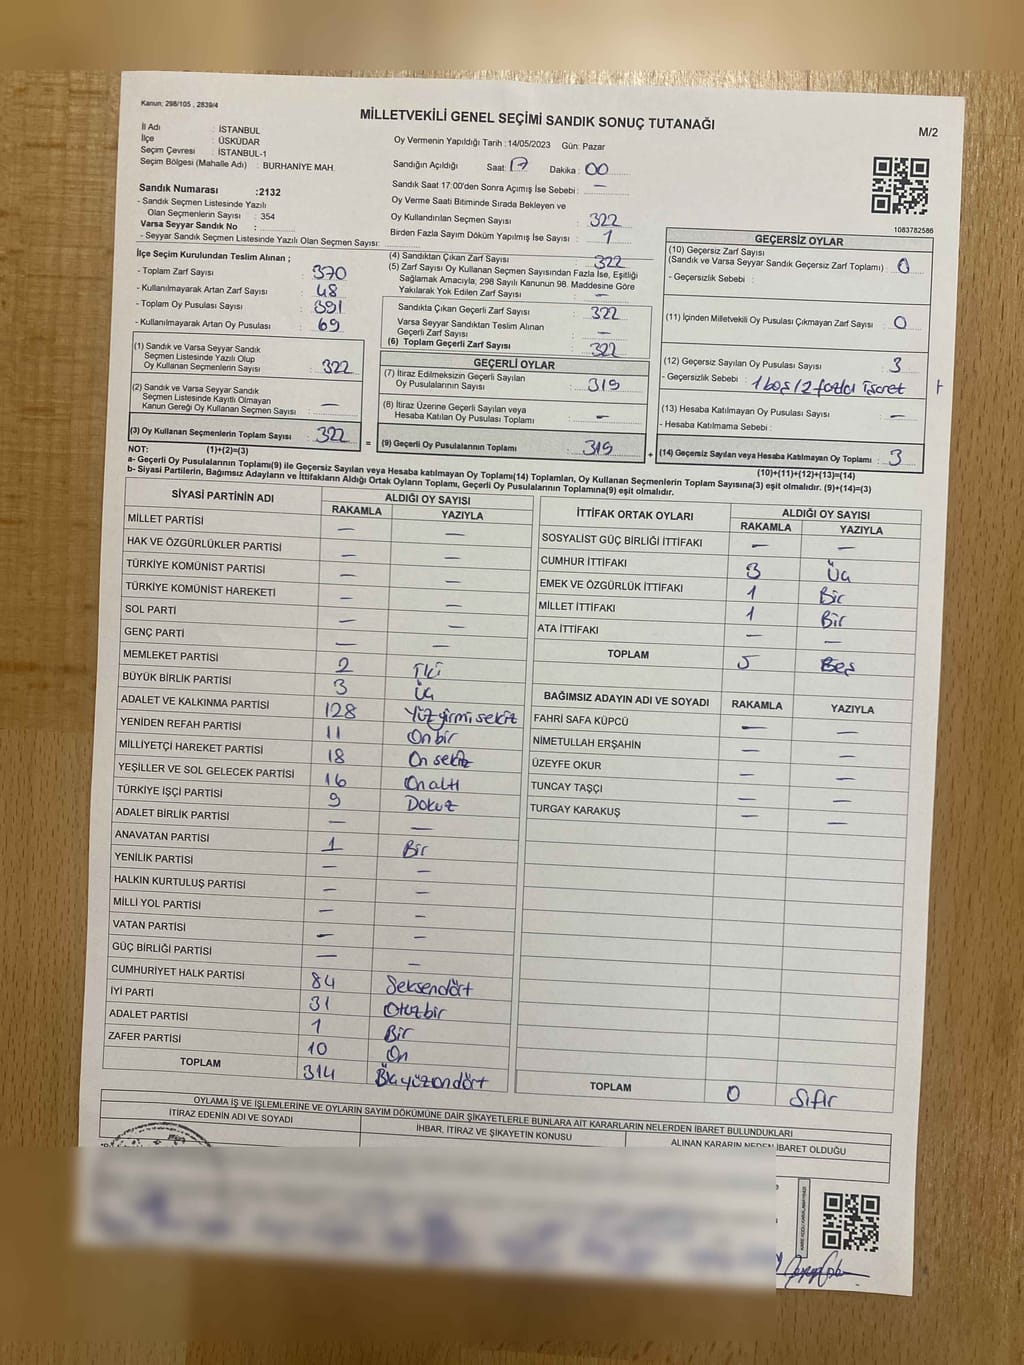 Kanun; 298/105 , 2839/4
MİLLETVEKİLİ GENEL SEÇİMİ SANDIK SONUÇ TUTANAĞI
M/2
İl Adı : İSTANBUL
İlçe : ÜSKÜDAR
Seçim Çevresi : İSTANBUL-1
Seçim Bölgesi (Mahalle Adı) : BURHANİYE MAH
Oy Vermenin Yapıldığı Tarih : 14/05/2023 Gün: Pazar
Sandığın Açıldığı Saat: 17 Dakika : 00
Sandık Saat 17:00'den Sonra Açımış İse Sebebi : —
Sandık Numarası :2132
- Sandık Seçmen Listesinde Yazılı
Olan Seçmenlerin Sayısı : 354
Varsa Seyyar Sandık No :
- Seyyar Sandık Seçmen Listesinde Yazılı Olan Seçmen Sayısı:
Oy Verme Saati Bitiminde Sırada Bekleyen ve
Oy Kullandırılan Seçmen Sayısı : 322
Birden Fazla Sayım Döküm Yapılmış İse Sayısı : 1
1083782586
İlçe Seçim Kurulundan Teslim Alınan ;
- Toplam Zarf Sayısı : 370
- Kullanılmayarak Artan Zarf Sayısı : 48
- Toplam Oy Pusulası Sayısı : 391
- Kullanılmayarak Artan Oy Pusulası : 69
(4) Sandıktan Çıkan Zarf Sayısı : 322
(5) Zarf Sayısı Oy Kullanan Seçmen Sayısından Fazla İse, Eşitliği
Sağlamak Amacıyla, 298 Sayılı Kanunun 98. Maddesine Göre
Yakılarak Yok Edilen Zarf Sayısı : —
Sandıkta Çıkan Geçerli Zarf Sayısı : 322
Varsa Seyyar Sandıktan Teslim Alınan
Geçerli Zarf Sayısı : —
(6) Toplam Geçerli Zarf Sayısı : 322
(1) Sandık ve Varsa Seyyar Sandık
Seçmen Listesinde Yazılı Olup
Oy Kullanan Seçmenlerin Sayısı : 322
(2) Sandık ve Varsa Seyyar Sandık
Seçmen Listesinde Kayıtlı Olmayan
Kanun Gereği Oy Kullanan Seçmen Sayısı : —
(3) Oy Kullanan Seçmenlerin Toplam Sayısı : 322
GEÇERLİ OYLAR
(7) İtiraz Edilmeksizin Geçerli Sayılan
Oy Pusulalarının Sayısı : 319
(8) İtiraz Üzerine Geçerli Sayılan veya
Hesaba Katılan Oy Pusulası Toplamı : —
= (9) Geçerli Oy Pusulalarının Toplamı : 319
GEÇERSİZ OYLAR
(10) Geçersiz Zarf Sayısı
(Sandık ve Varsa Seyyar Sandık Geçersiz Zarf Toplamı) : 0
- Geçersizlik Sebebi :
(11) İçinden Milletvekili Oy Pusulası Çıkmayan Zarf Sayısı : 0
(12) Geçersiz Sayılan Oy Pusulası Sayısı : 3
- Geçersizlik Sebebi : 1 boş / 2 fazla işaret
(13) Hesaba Katılmayan Oy Pusulası Sayısı : —
- Hesaba Katılmama Sebebi :
+ (14) Geçersiz Sayılan veya Hesaba Katılmayan Oy Toplamı : 3
NOT: (1)+(2)=(3)
(10)+(11)+(12)+(13)=(14)
a- Geçerli Oy Pusulalarının Toplamı(9) ile Geçersiz Sayılan veya Hesaba katılmayan Oy Toplamı(14) Toplamları, Oy Kullanan Seçmenlerin Toplam Sayısına(3) eşit olmalıdır. (9)+(14)=(3)
b- Siyasi Partilerin, Bağımsız Adayların ve İttifakların Aldığı Ortak Oyların Toplamı, Geçerli Oy Pusulalarının Toplamına(9) eşit olmalıdır.
SİYASİ PARTİNİN ADI ALDIĞI OY SAYISI
RAKAMLA YAZIYLA
MİLLET PARTİSİ — —
HAK VE ÖZGÜRLÜKLER PARTİSİ — —
TÜRKİYE KOMÜNİST PARTİSİ — —
TÜRKİYE KOMÜNİST HAREKETİ — —
SOL PARTİ — —
GENÇ PARTİ — —
MEMLEKET PARTİSİ 2 İki
BÜYÜK BİRLİK PARTİSİ 3 Üç
ADALET VE KALKINMA PARTİSİ 128 Yüz yirmi sekiz
YENİDEN REFAH PARTİSİ 11 On bir
MİLLİYETÇİ HAREKET PARTİSİ 18 On sekiz
YEŞİLLER VE SOL GELECEK PARTİSİ 16 On altı
TÜRKİYE İŞÇİ PARTİSİ 9 Dokuz
ADALET BİRLİK PARTİSİ — —
ANAVATAN PARTİSİ 1 Bir
YENİLİK PARTİSİ — —
HALKIN KURTULUŞ PARTİSİ — —
MİLLİ YOL PARTİSİ — —
VATAN PARTİSİ — —
GÜÇ BİRLİĞİ PARTİSİ — —
CUMHURİYET HALK PARTİSİ 84 Seksendört
İYİ PARTİ 31 Otuzbir
ADALET PARTİSİ 1 Bir
ZAFER PARTİSİ 10 On
TOPLAM 314 Üçyüzondört
İTTİFAK ORTAK OYLARI ALDIĞI OY SAYISI
RAKAMLA YAZIYLA
SOSYALİST GÜÇ BİRLİĞİ İTTİFAKI — —
CUMHUR İTTİFAKI 3 Üç
EMEK VE ÖZGÜRLÜK İTTİFAKI 1 Bir
MİLLET İTTİFAKI 1 Bir
ATA İTTİFAKI — —
TOPLAM 5 Beş
BAĞIMSIZ ADAYIN ADI VE SOYADI RAKAMLA YAZIYLA
FAHRİ SAFA KÜPCÜ — —
NİMETULLAH ERŞAHİN — —
ÜZEYFE OKUR — —
TUNCAY TAŞÇI — —
TURGAY KARAKUŞ — —
TOPLAM 0 Sıfır
OYLAMA İŞ VE İŞLEMLERİNE VE OYLARIN SAYIM DÖKÜMÜNE DAİR ŞİKAYETLERLE BUNLARA AİT KARARLARIN NELERDEN İBARET BULUNDUKLARI
İTİRAZ EDENİN ADI VE SOYADI İHBAR, İTİRAZ VE ŞİKAYETİN KONUSU ALINAN KARARIN NEDEN İBARET OLDUĞU